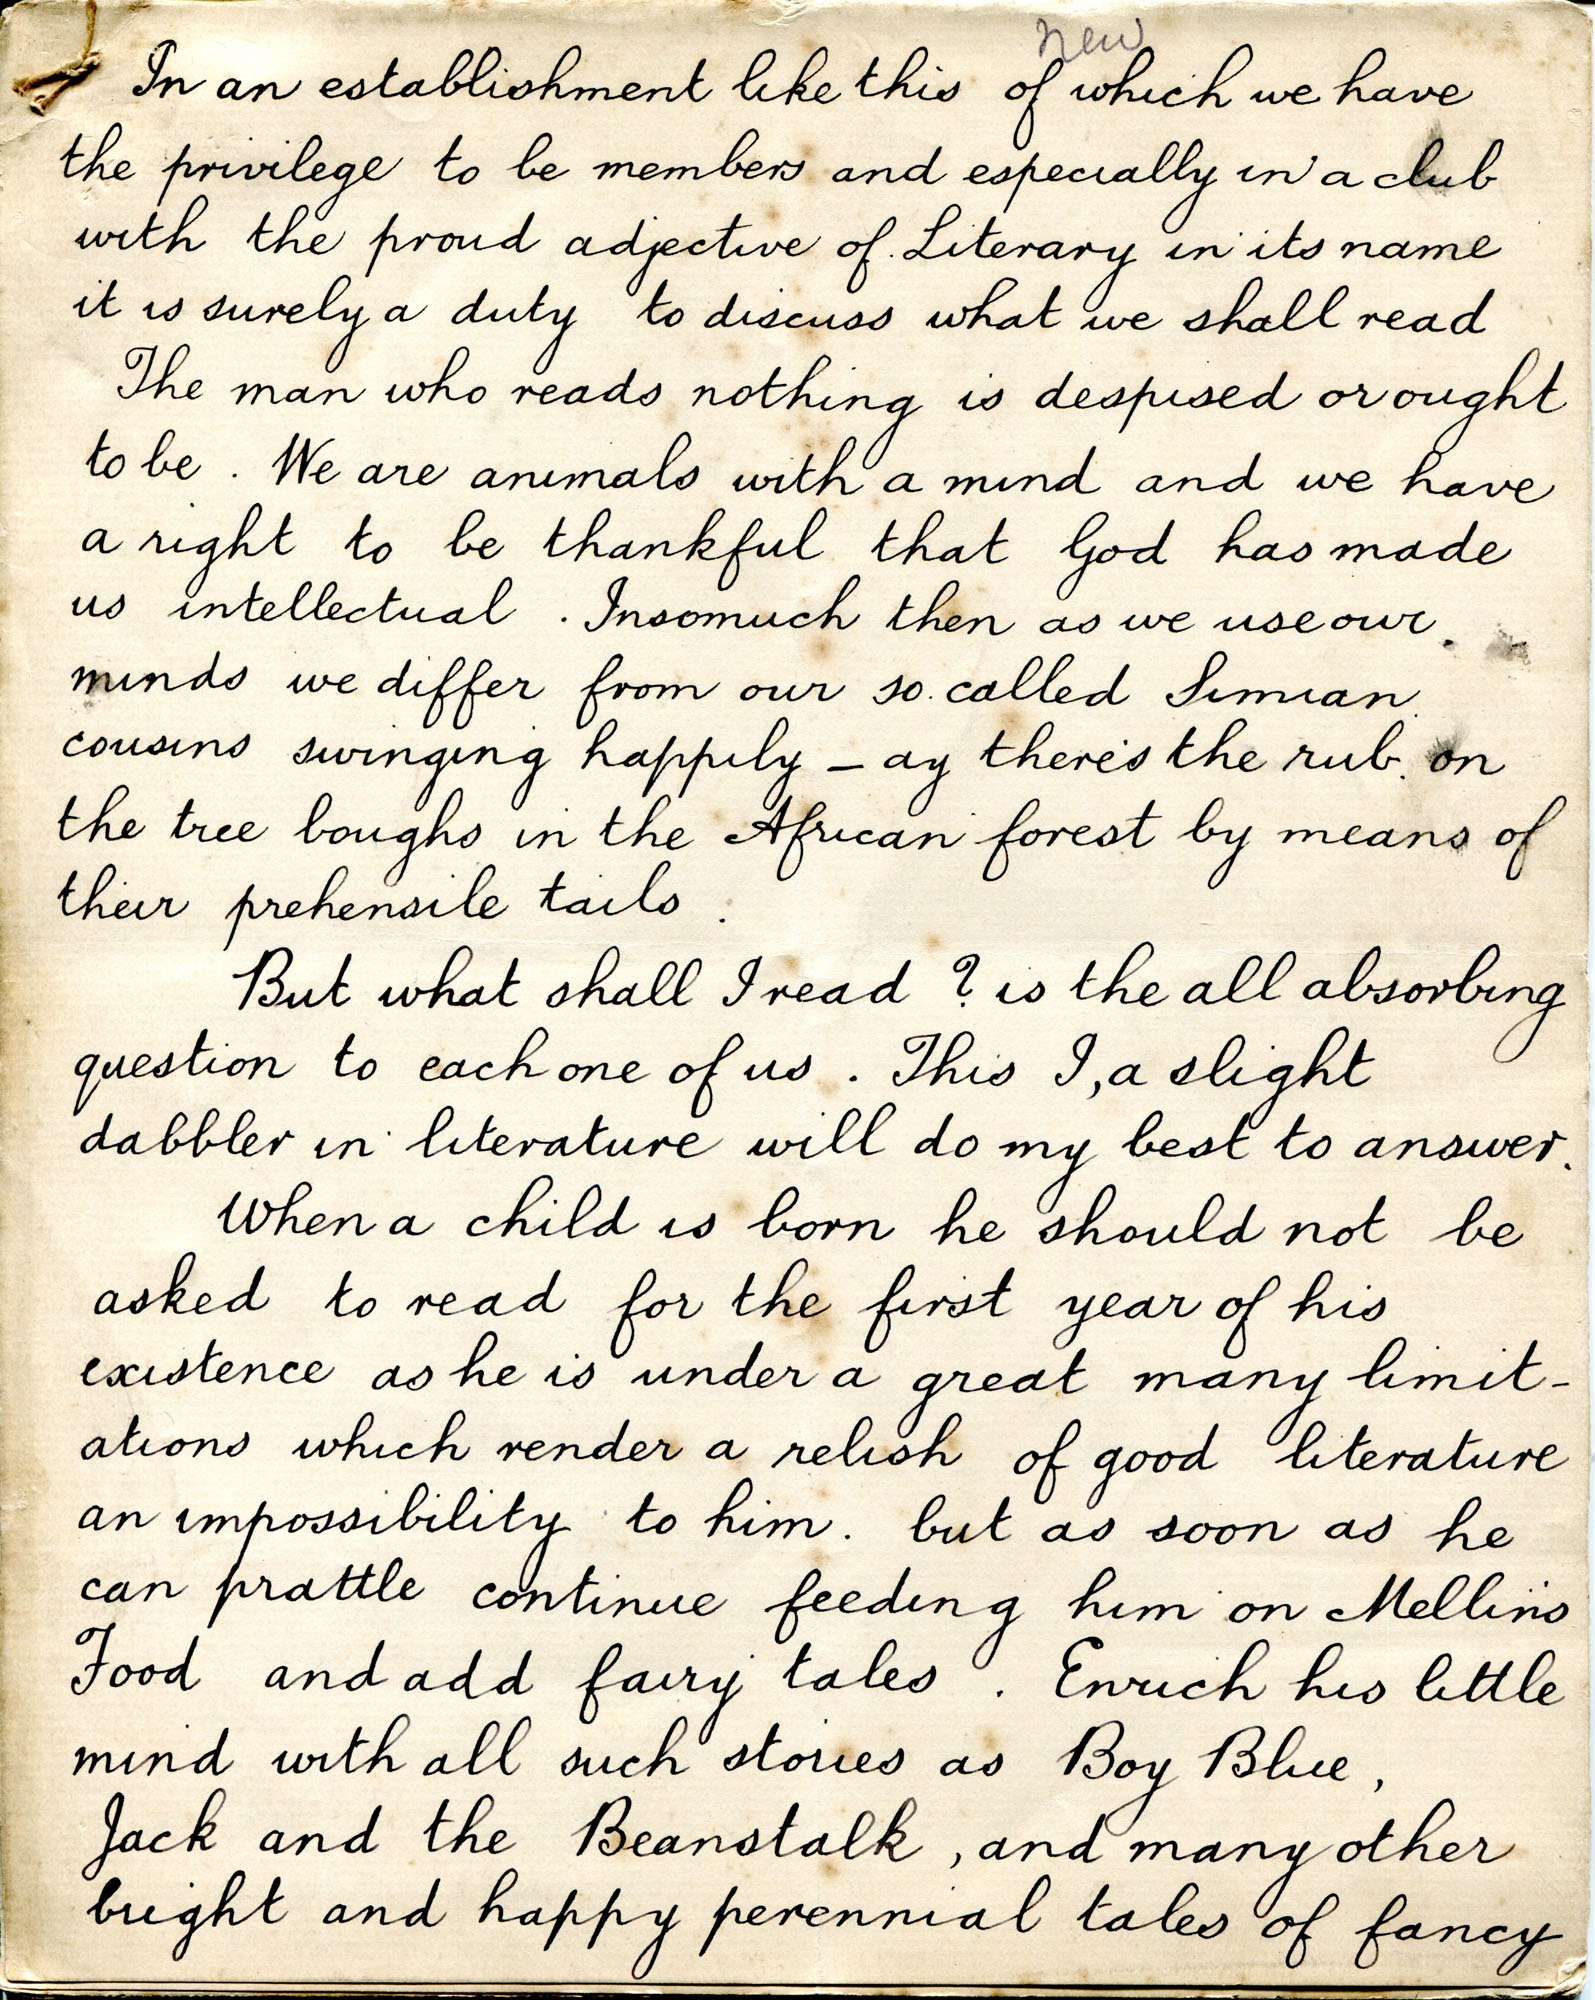 new
In an establishment like this of which we have
the privilege to be members and especially in a club
with the proud adjective of Literary in its name
it is surely a duty to discuss what we shall read
The man who reads nothing is despised or ought
to be. We are animals with a mind and we have
a right to be thankful that God has made
us intellectual. Insomuch then as we use our
minds we differ from our so.called Simian
cousins swinging happily – ay there's the rub. on
the tree boughs in the African forest by means of
their prehensile tails.
But what shall I read? is the all absorbing
question to each one of us. This I, a slight
dabbler in literature will do my best to answer.
When a child is born he should not be
asked to read for the first year of his
existence as he is under a great many limit-
ations which render a relish of good literature
an impossibility to him. but as soon as he
can prattle continue feeding him on Mellin's
Food and add fairy tales. Enrich his little
mind with all such stories as Boy Blue,
Jack and the Beanstalk, and many other
bright and happy perennial tales of fancy